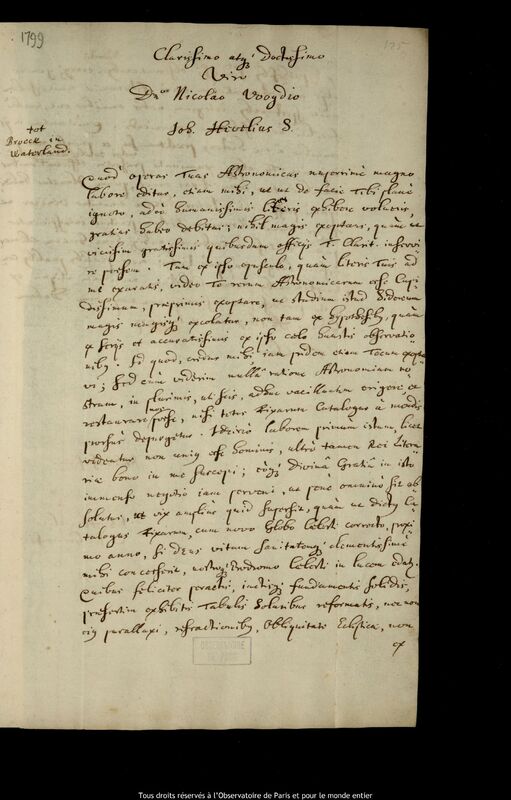 1799
175
Clarissimo atq; Doctissimo
Viro
Dno Nicolao Voogdio
Joh. Hevelius S.
tot
Broeck in
Waterland.
Quod operas Tuas Astronomicas nuperrime magno
labore editas, etiam mihi, ut ut de facie Tibi plane
ignoto, adeo humanissimis literis exhibere volueris,
gratias habeo debitas; nihil magis exoptans, quam ut
vicissim gratissimis quibusdam officijs T. Clarit. inservi-
re possem. Tam ex ipso opusculo, quam literis Tuis ad
me exaratis, video Te rerum Astronomicarum esse Cupi-
dissimum, preprimis exoptare, ut studium istud Siderum
magis magisq; excolatur, non tam ex Hypothesib, quam
ex serijs et accuratissimis ex ipso celo haustis observatio-
nib. Id quod, crede mihi iam pridem etiam Tecum exopta-
vi; sed cum viderim nulla ratione Astronomiam no-
stram, in plurimis, ut scis, adhuc vacillantem erigere, et
restaurare posse, nisi totus Fixarum Catalogus a mendis
prorsus depurgetur. Idcirco laborem primum istum, licet
videatur non unius esse hominis, ultro tamen Rei Litera-
riæ bono in me suscepi; eoq; Divina Gratia in isto
immenso negotio iam perveni, ut pene omnino sit ab-
solutus, ut vix amplius quid supersit, quam ut dictus Ca-
talogus Fixarum, cum novo Globo Celesti correcto, proxi-
mo anno, si Deus vitam sanitatemq; clementissime
mihi concesserit, Prodromo Celesti in lucem edatur.
Quibus feliciter peractis, iactisq; fundamentis solidis,
presertim exhibitis Tabulis Solaribus reformatis, nec non
eius parallaxi, refractionibus, Obliquitate Eclipticæ, non
ex
OBSERVATOIRE
DE PARIS
Tous droits réservés à l'Observatoire de Paris et pour le monde entier